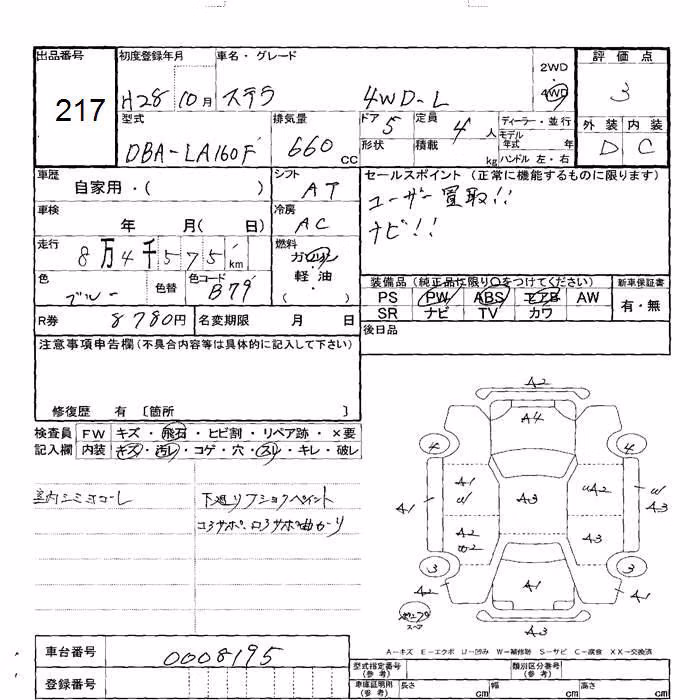 出品番号 初度登録年月 車名・グレード 2WD・4WD 評価点
217 H28 10月 ステラ 4WD-L 3
型式 排気量 ドア 5 定員 4人 ディーラー・並行 外装 内装
DBA-LA160F 660cc 形状 積載 kg モデル年式 年 D C
ハンドル 左・右
車歴 自家用・( ) シフト AT セールスポイント (正常に機能するものに限ります)
ユーザー買取!!
車検 年 月( 日) 冷房 AC ナビ!!
走行 8万4千575km 燃料 ガソリン
軽油
( )
色 ブルー 色替 色コード B79 装備品 (純正品に限り○をつけてください) 新車保証書
PS PW ABS エアB AW 有・無
SR ナビ TV カワ
R券 8780円 名変期限 月 日 後日品
注意事項申告欄 (不具合内容等は具体的に記入して下さい)
修復歴 有 〔箇所 〕
検査員 FW キズ・飛石・ヒビ割・リペア跡・×要
記入欄 内装 キズ・汚レ・コゲ・穴・スレ・キレ・破レ
下廻リフショクペイント
A2
A4
4 4
A1 A1 U A3 U A2 U A3
A2 W2 A3
3 3
A1 A1
スペア
A3
A-キズ E-エクボ U-凹み W-補修跡 S-サビ C-腐食 XX-交換済
車台番号 0008195
登録番号
型式指定番号 (参考) 類別区分番号 (参考)
車庫証明用 (参考) 長さ cm 幅 cm 高さ cm